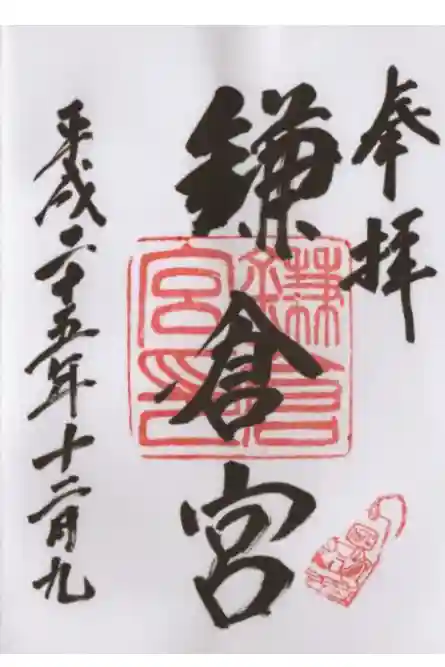 奉拝
鎌倉宮
鎌倉宮印
平成二十五年十二月九